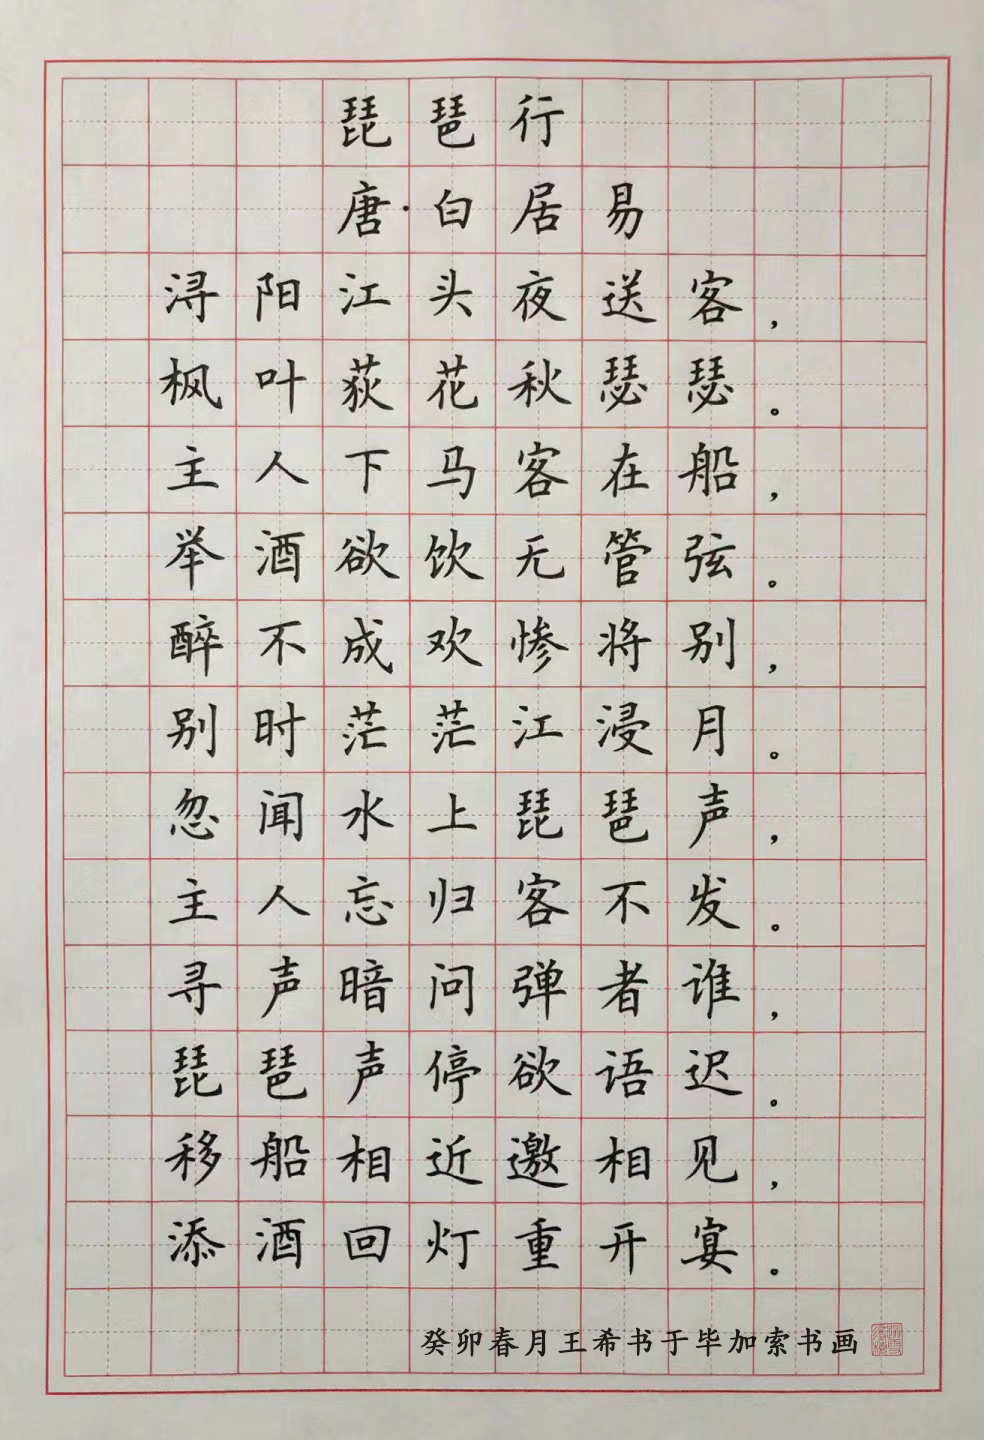 琵琶行
唐·白居易
浔阳江头夜送客，
枫叶荻花秋瑟瑟。
主人下马客在船，
举酒欲饮无管弦。
醉不成欢惨将别，
别时茫茫江浸月。
忽闻水上琵琶声，
主人忘归客不发。
寻声暗问弹者谁，
琵琶声停欲语迟。
移船相近邀相见，
添酒回灯重开宴。
癸卯春月王希书于毕加索书画